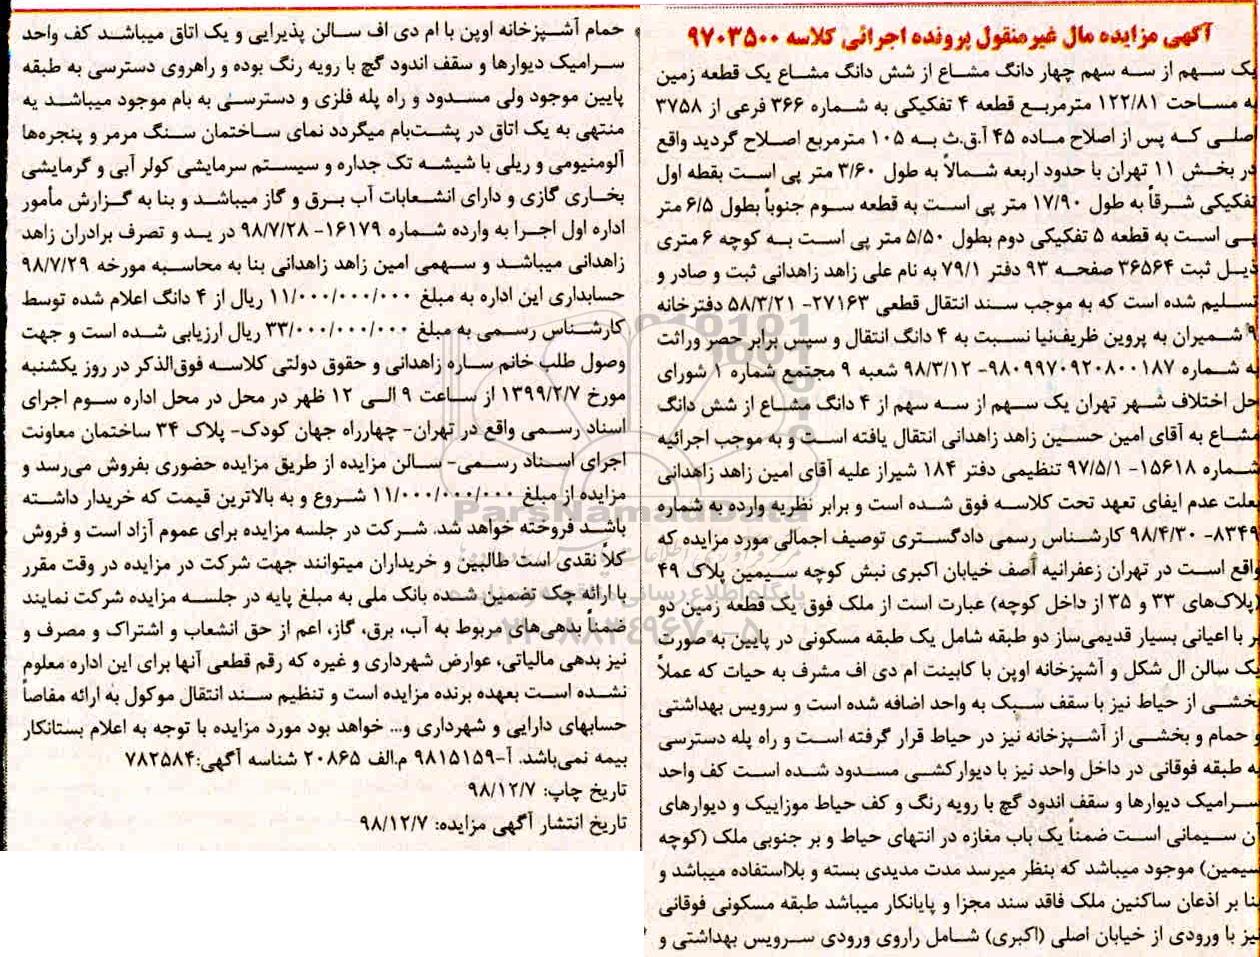 آگهی مزایده مال غیرمنقول پرونده اجرائی کلاسه ۹۷۰۳۵۰۰
یک سهم از سه سهم چهار دانگ مشاع از شش دانگ مشاع یک قطعه زمین
به مساحت ۱۲۲/۸۱ مترمربع قطعه ۴ تفکیکی به شماره ۳۶۶ فرعی از ۳۷۵۸
اصلی که پس از اصلاح ماده ۴۵ آ.ق.ث به ۱۰۵ مترمربع اصلاح گردید واقع
در بخش ۱۱ تهران با حدود اربعه شمالاً به طول ۳/۶۰ متر پی است بقطه اول
تفکیکی شرقاً به طول ۱۷/۹۰ متر پی است به قطعه سوم جنوباً بطول ۶/۵ متر
پی است به قطعه ۵ تفکیکی دوم بطول ۵/۵۰ متر پی است به کوچه ۶ متری
ذیل ثبت ۳۶۵۶۴ صفحه ۹۳ دفتر ۷۹/۱ به نام علی زاهد زاهدانی ثبت و صادر و
تسلیم شده است که به موجب سند انتقال قطعی ۲۷۱۶۳- ۵۸/۳/۲۱ دفترخانه
۹ شمیران به پروین ظریف‌نیا نسبت به ۴ دانگ انتقال و سپس برابر حصر وراثت
به شماره ۹۸۰۹۹۷۰۹۲۰۸۰۰۱۸۷- ۹۸/۳/۱۲ شعبه ۹ مجتمع شماره ۱ شورای
حل اختلاف شهر تهران یک سهم از سه سهم از ۴ دانگ مشاع از شش دانگ
مشاع به آقای امین حسین زاهد زاهدانی انتقال یافته است و به موجب اجرائیه
شماره ۱۵۶۱۸- ۹۷/۵/۱ تنظیمی دفتر ۱۸۴ شیراز علیه آقای امین زاهد زاهدانی
بعلت عدم ایفای تعهد تحت کلاسه فوق شده است و برابر نظریه وارده به شماره
۸۳۴۹- ۹۸/۴/۳۰ کارشناس رسمی دادگستری توصیف اجمالی مورد مزایده که
واقع است در تهران زعفرانیه آصف خیابان اکبری نبش کوچه سیمین پلاک ۴۹
(پلاک‌های ۳۳ و ۳۵ از داخل کوچه) عبارت است از ملک فوق یک قطعه زمین دو
بر با اعیانی بسیار قدیمی‌ساز دو طبقه شامل یک طبقه مسکونی در پایین به صورت
یک سالن ال شکل و آشپزخانه اوپن با کابینت ام دی اف مشرف به حیات که عملاً
بخشی از حیاط نیز با سقف سبک به واحد اضافه شده است و سرویس بهداشتی
و حمام و بخشی از آشپزخانه نیز در حیاط قرار گرفته است و راه پله دسترسی
به طبقه فوقانی در داخل واحد نیز با دیوارکشی مسدود شده است کف واحد
سرامیک دیوارها و سقف اندود گچ با رویه رنگ و کف حیاط موزاییک و دیوارهای
آن سیمانی است ضمناً یک باب مغازه در انتهای حیاط و بر جنوبی ملک (کوچه
سیمین) موجود میباشد که بنظر میرسد مدت مدیدی بسته و بلااستفاده میباشد و
بنا بر اذعان ساکنین ملک فاقد سند مجزا و پایانکار میباشد طبقه مسکونی فوقانی
نیز با ورودی از خیابان اصلی (اکبری) شامل راروی ورودی سرویس بهداشتی و
حمام آشپزخانه اوپن با ام دی اف سالن پذیرایی و یک اتاق میباشد کف واحد
سرامیک دیوارها و سقف اندود گچ با رویه رنگ بوده و راهروی دسترسی به طبقه
پایین موجود ولی مسدود و راه پله فلزی و دسترسی به بام موجود میباشد یه
منتهی به یک اتاق در پشت‌بام میگردد نمای ساختمان سنگ مرمر و پنجره‌ها
آلومنیومی و ریلی با شیشه تک جداره و سیستم سرمایشی کولر آبی و گرمایشی
بخاری گازی و دارای انشعابات آب برق و گاز میباشد و بنا به گزارش مأمور
اداره اول اجرا به وارده شماره ۱۶۱۷۹- ۹۸/۷/۲۸ در ید و تصرف برادران زاهد
زاهدانی میباشد و سهمی امین زاهد زاهدانی بنا به محاسبه مورخه ۹۸/۷/۲۹
حسابداری این اداره به مبلغ ۱۱/۰۰۰/۰۰۰/۰۰۰ ریال از ۴ دانگ اعلام شده توسط
کارشناس رسمی به مبلغ ۳۳/۰۰۰/۰۰۰/۰۰۰ ریال ارزیابی شده است و جهت
وصول طلب خانم ساره زاهدانی و حقوق دولتی کلاسه فوق‌الذکر در روز یکشنبه
مورخ ۱۳۹۹/۲/۷ از ساعت ۹ الی ۱۲ ظهر در محل در محل اداره سوم اجرای
اسناد رسمی واقع در تهران- چهارراه جهان کودک- پلاک ۳۴ ساختمان معاونت
اجرای اسناد رسمی- سالن مزایده از طریق مزایده حضوری بفروش می‌رسد و
مزایده از مبلغ ۱۱/۰۰۰/۰۰۰/۰۰۰ شروع و به بالاترین قیمت که خریدار داشته
باشد فروخته خواهد شد. شرکت در جلسه مزایده برای عموم آزاد است و فروش
کلاً نقدی است طالبین و خریداران میتوانند جهت شرکت در مزایده در وقت مقرر
با ارائه چک تضمین شده بانک ملی به مبلغ پایه در جلسه مزایده شرکت نمایند
ضمناً بدهی‌های مربوط به آب، برق، گاز، اعم از حق انشعاب و اشتراک و مصرف و
نیز بدهی مالیاتی، عوارض شهرداری و غیره که رقم قطعی آنها برای این اداره معلوم
نشده است بعهده برنده مزایده است و تنظیم سند انتقال موکول به ارائه مفاصاً
حسابهای دارایی و شهرداری و... خواهد بود مورد مزایده با توجه به اعلام بستانکار
بیمه نمی‌باشد. آ-۹۸۱۵۱۵۹ م.الف ۲۰۸۶۵ شناسه آگهی:۷۸۲۵۸۴
تاریخ چاپ: ۹۸/۱۲/۷
تاریخ انتشار آگهی مزایده: ۹۸/۱۲/۷
ParsNamadData